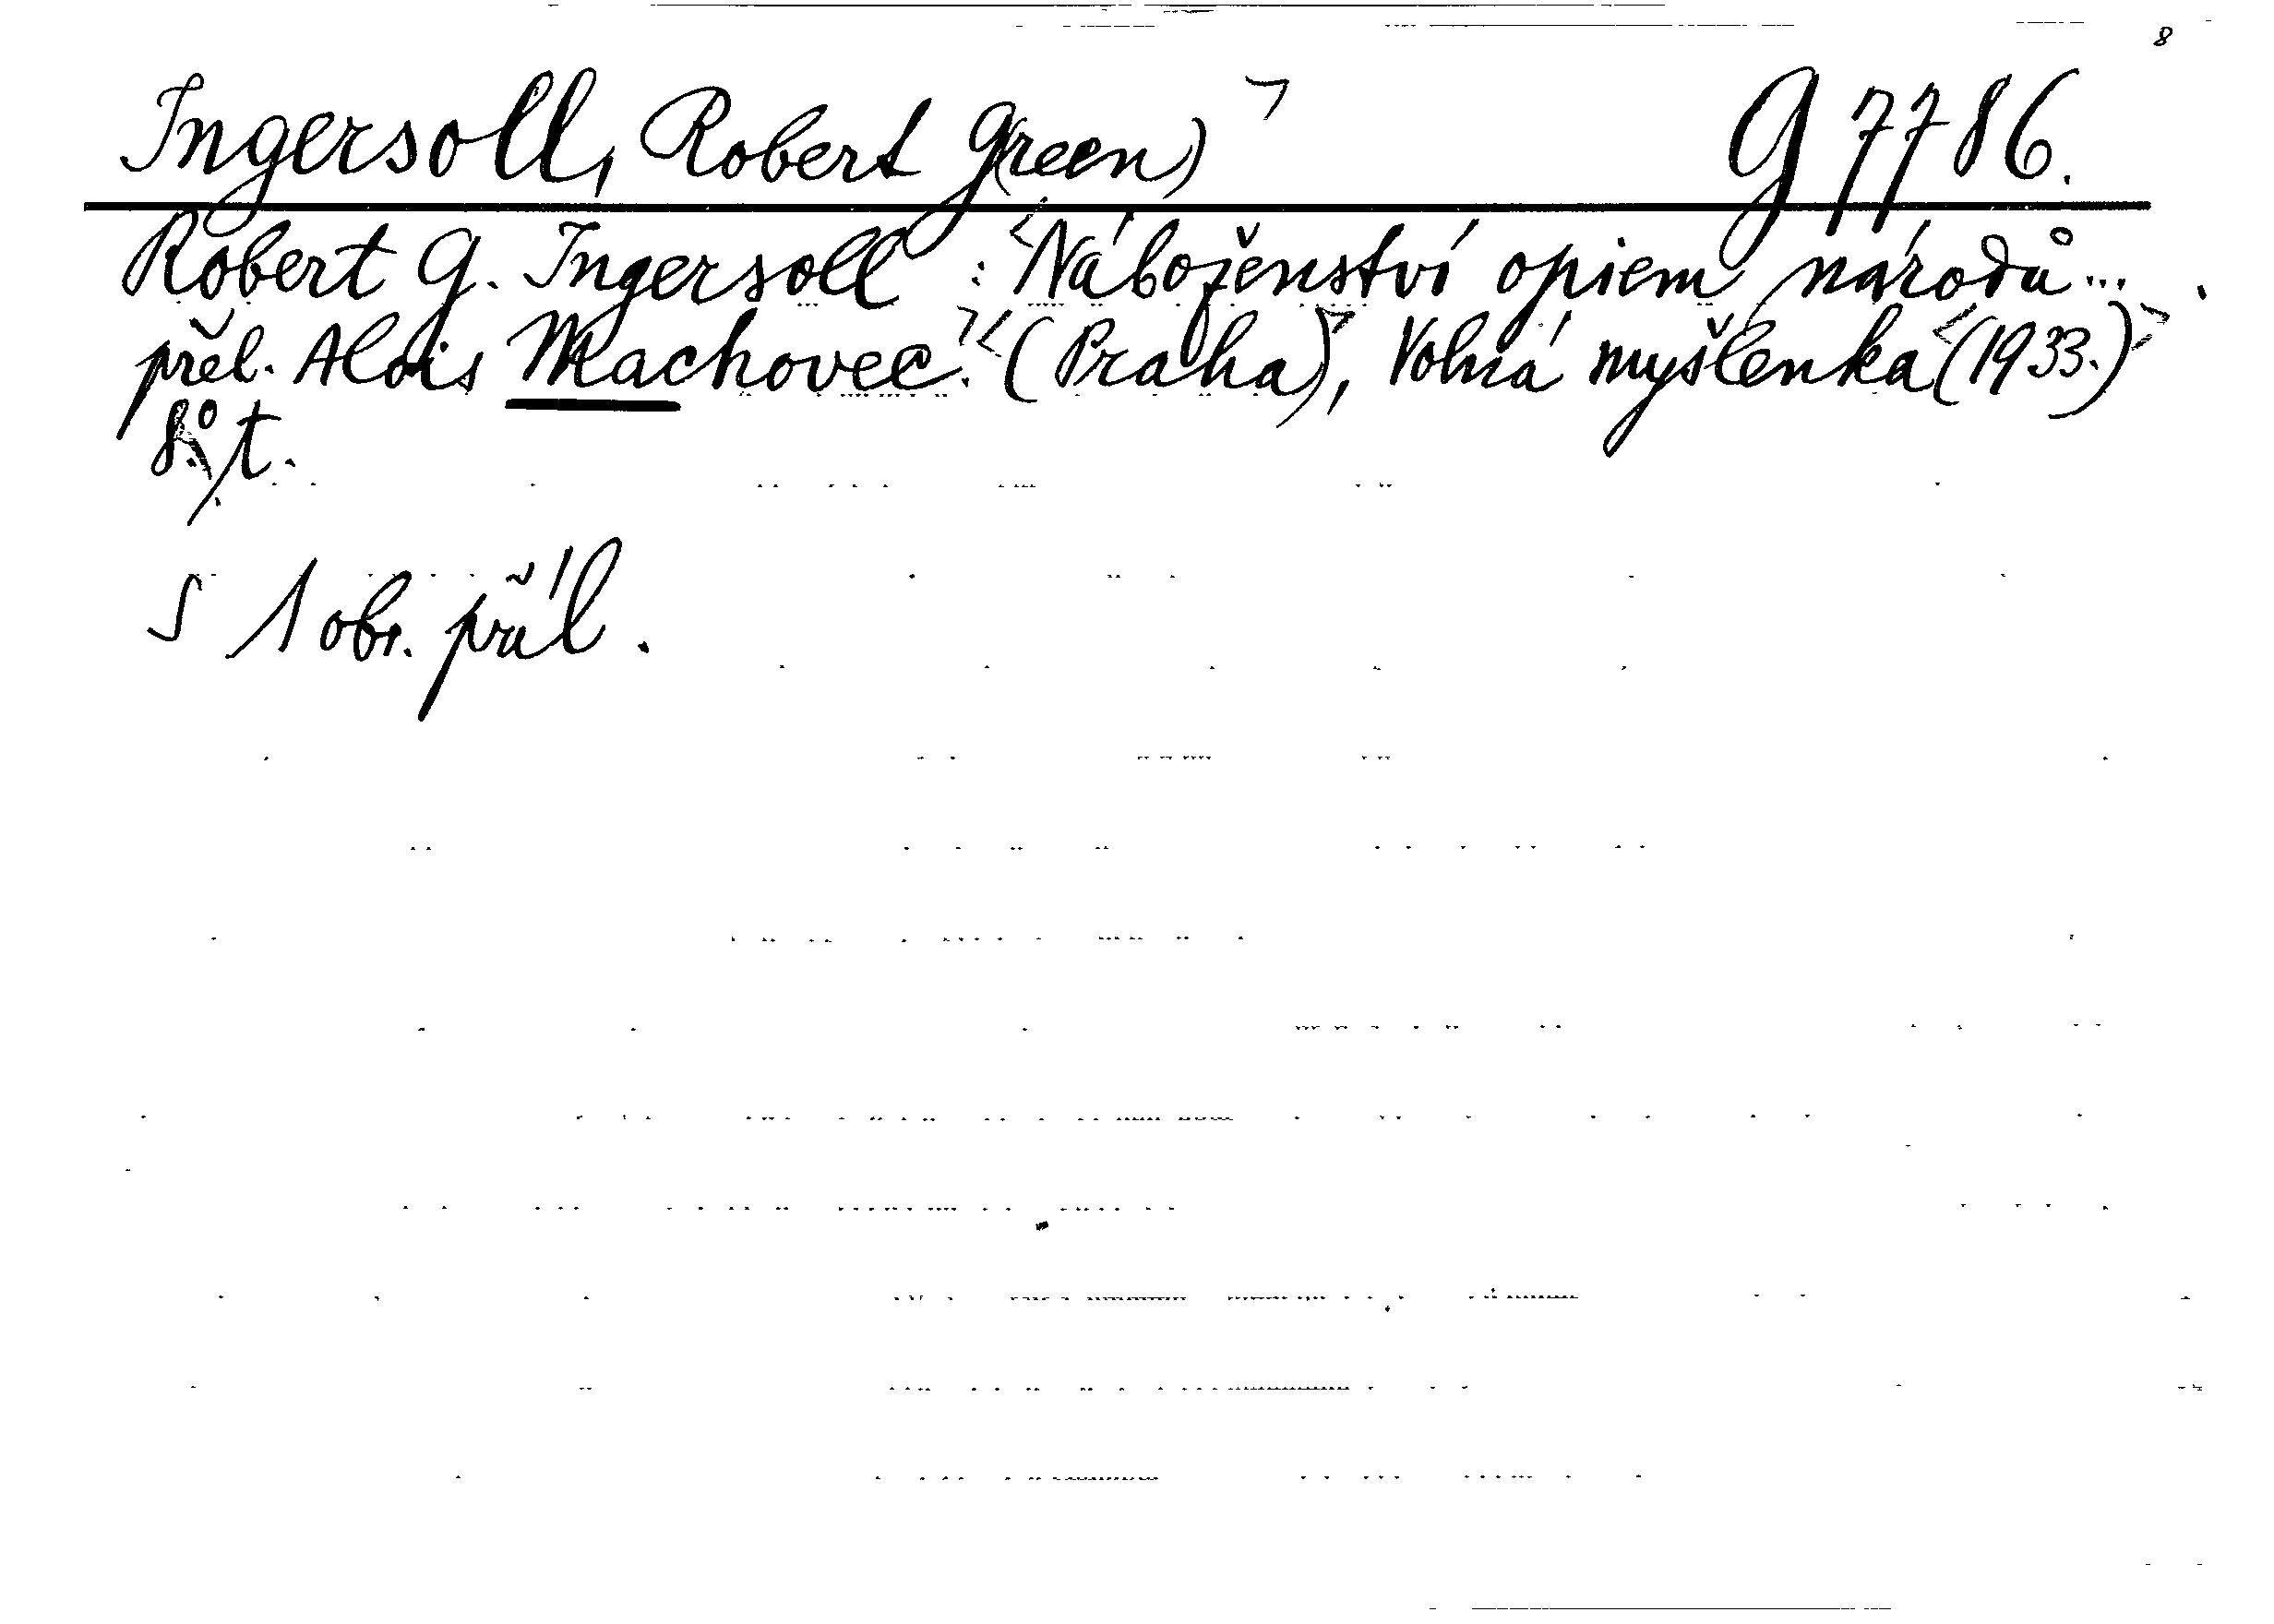 8
Ingersoll, Robert G(reen) G 7786.
Robert G. Ingersoll : Náboženství opiem národů... .
přel. Alois Machovec. (Praha), Volná myšlenka (1933.)
8° t.
S 1 obr. příl.